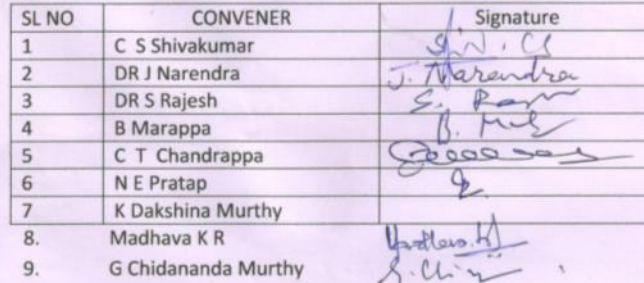 SL NO CONVENER Signature
1 C S Shivakumar
2 DR J Narendra J. Narendra
3 DR S Rajesh
4 B Marappa
5 C T Chandrappa
6 N E Pratap
7 K Dakshina Murthy
8. Madhava K R
9. G Chidananda Murthy